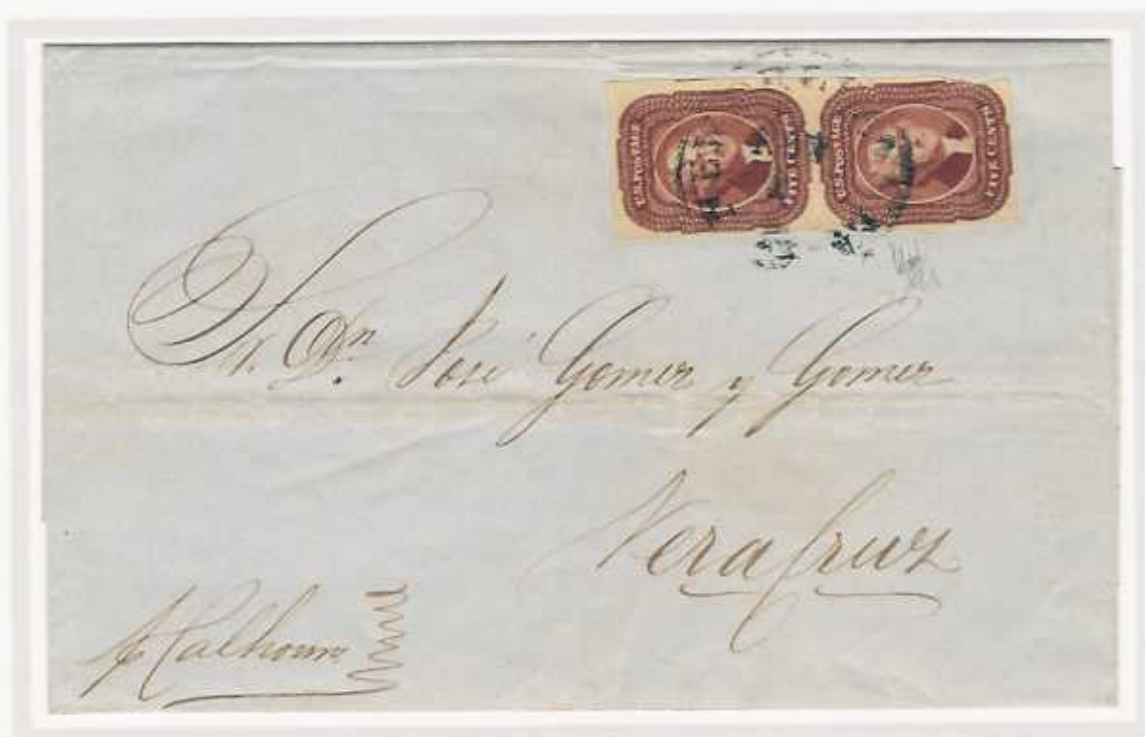 U.S. POSTAGE FIVE CENTS
U.S. POSTAGE FIVE CENTS
Sr. Dn. José Gomez y Gomez
Vera Cruz
p Calhoun